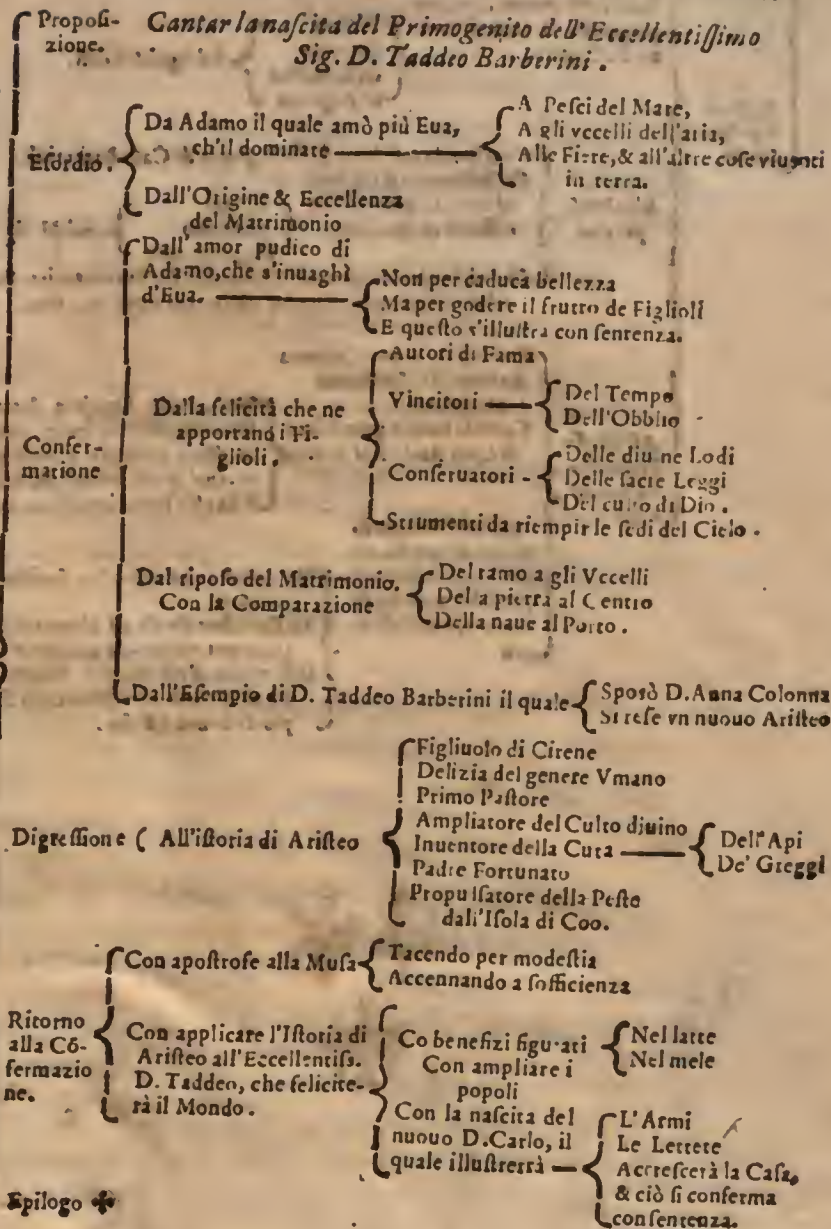 Proposi-
zione.
Cantar la nascita del Primogenito dell'Eccellentissimo
Sig. D. Taddeo Barberini.
Esordio.
Da Adamo il quale amò più Eua,
ch'il dominare
A Pesci del Mare,
A gli vccelli dell'aria,
Alle Fiere, & all'altre cose viuenti
in terra.
Dall'Origine & Eccellenza
del Matrimonio
Confer-
matione
Dall'amor pudico di
Adamo, che s'inuaghì
d'Eua.
Non per caduca bellezza
Ma per godere il frutto de Figlioli
E questo s'illustra con sentenza.
Dalla felicità che ne
apportano i Fi-
glioli.
Autori di Fama
Vincitori
Del Tempo
Dell'Obblio
Conseruatori -
Delle diuine Lodi
Delle sacre Leggi
Del culto di Dio.
Strumenti da riempir le sedi del Cielo.
Dal riposo del Matrimonio.
Con la Comparazione
Del ramo a gli Vccelli
Della pietra al Centro
Della naue al Porto.
Dall'Esempio di D. Taddeo Barberini il quale
Sposò D. Anna Colonna
Si rese vn nuouo Aristeo
Digressione ( All'istoria di Aristeo
Figliuolo di Cirene
Delizia del genere Vmano
Primo Pastore
Ampliatore del Culto diuino
Inuentore della Cura
Dell'Api
De' Greggi
Padre Fortunato
Propulsatore della Peste
dall'Isola di Coo.
Ritorno
alla Cõ-
fermazio
ne.
Con apostrofe alla Musa
Tacendo per modestia
Accennando a sofficienza
Con applicare l'Istoria di
Aristeo all'Eccellentiss.
D. Taddeo, che felicite-
rà il Mondo.
Co benefizi figurati
Nel latte
Nel mele
Con ampliare i
popoli
Con la nascita del
nuouo D. Carlo, il
quale illustrerrà
L'Armi
Le Lettere
Accrescerà la Casa,
& ciò si conferma
con sentenza.
Epilogo ✤